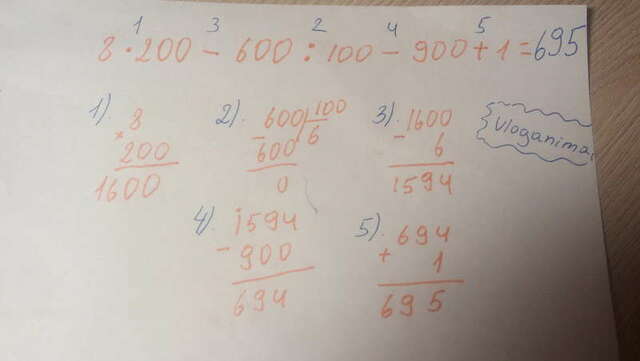 1 3 2 4 5
8 · 200 - 600 : 100 - 900 + 1 = 695
1). 8
× 200
1600
2). - 600 100
600 6
0
3). - 1600
6
1594
Vloganima
4). - 1594
900
694
5). + 694
1
695